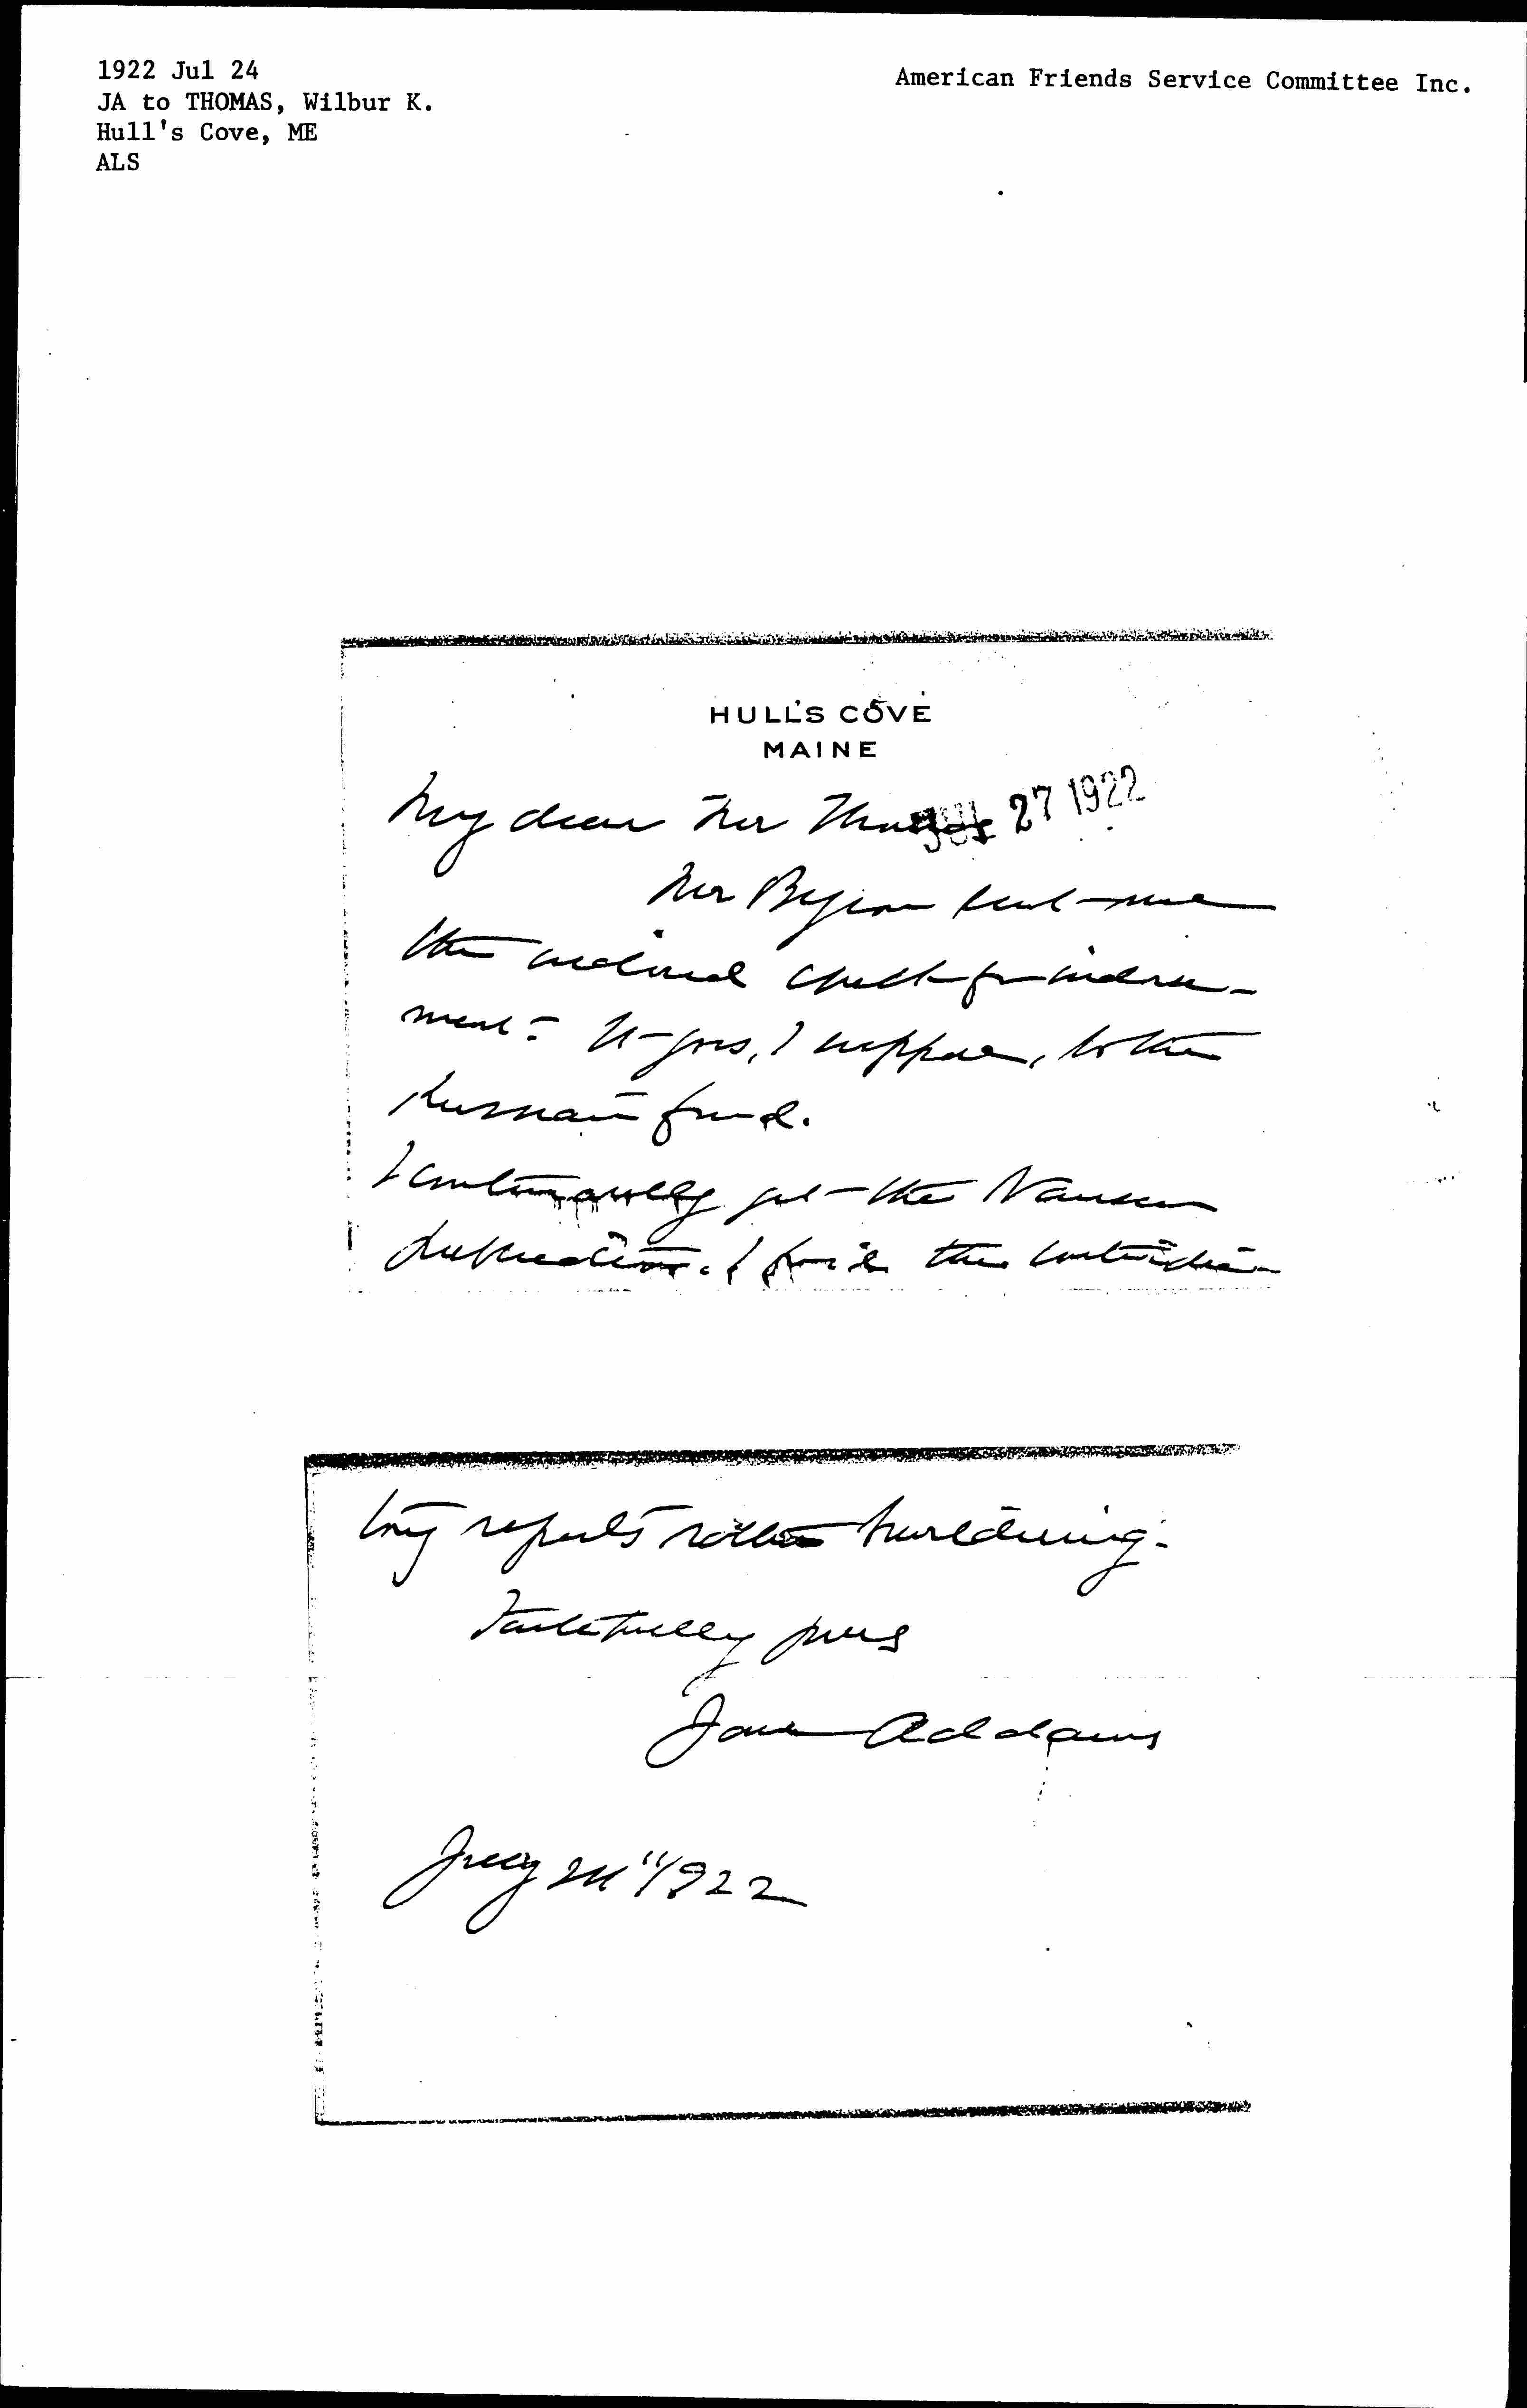 1922 Jul 24
JA to THOMAS, Wilbur K.
Hull's Cove, ME
ALS
American Friends Service Committee Inc.
HULL'S COVE
MAINE
My dear Mr Thomas
JUL 27 1922
Mr sent me
the enclosed check for indorse-
ment - It goes, I suppose, to the
Russian fund.
I continually get the Nansen
I find the
long reports rather
Faithfully yours
Jane Addams
July 24" 1922